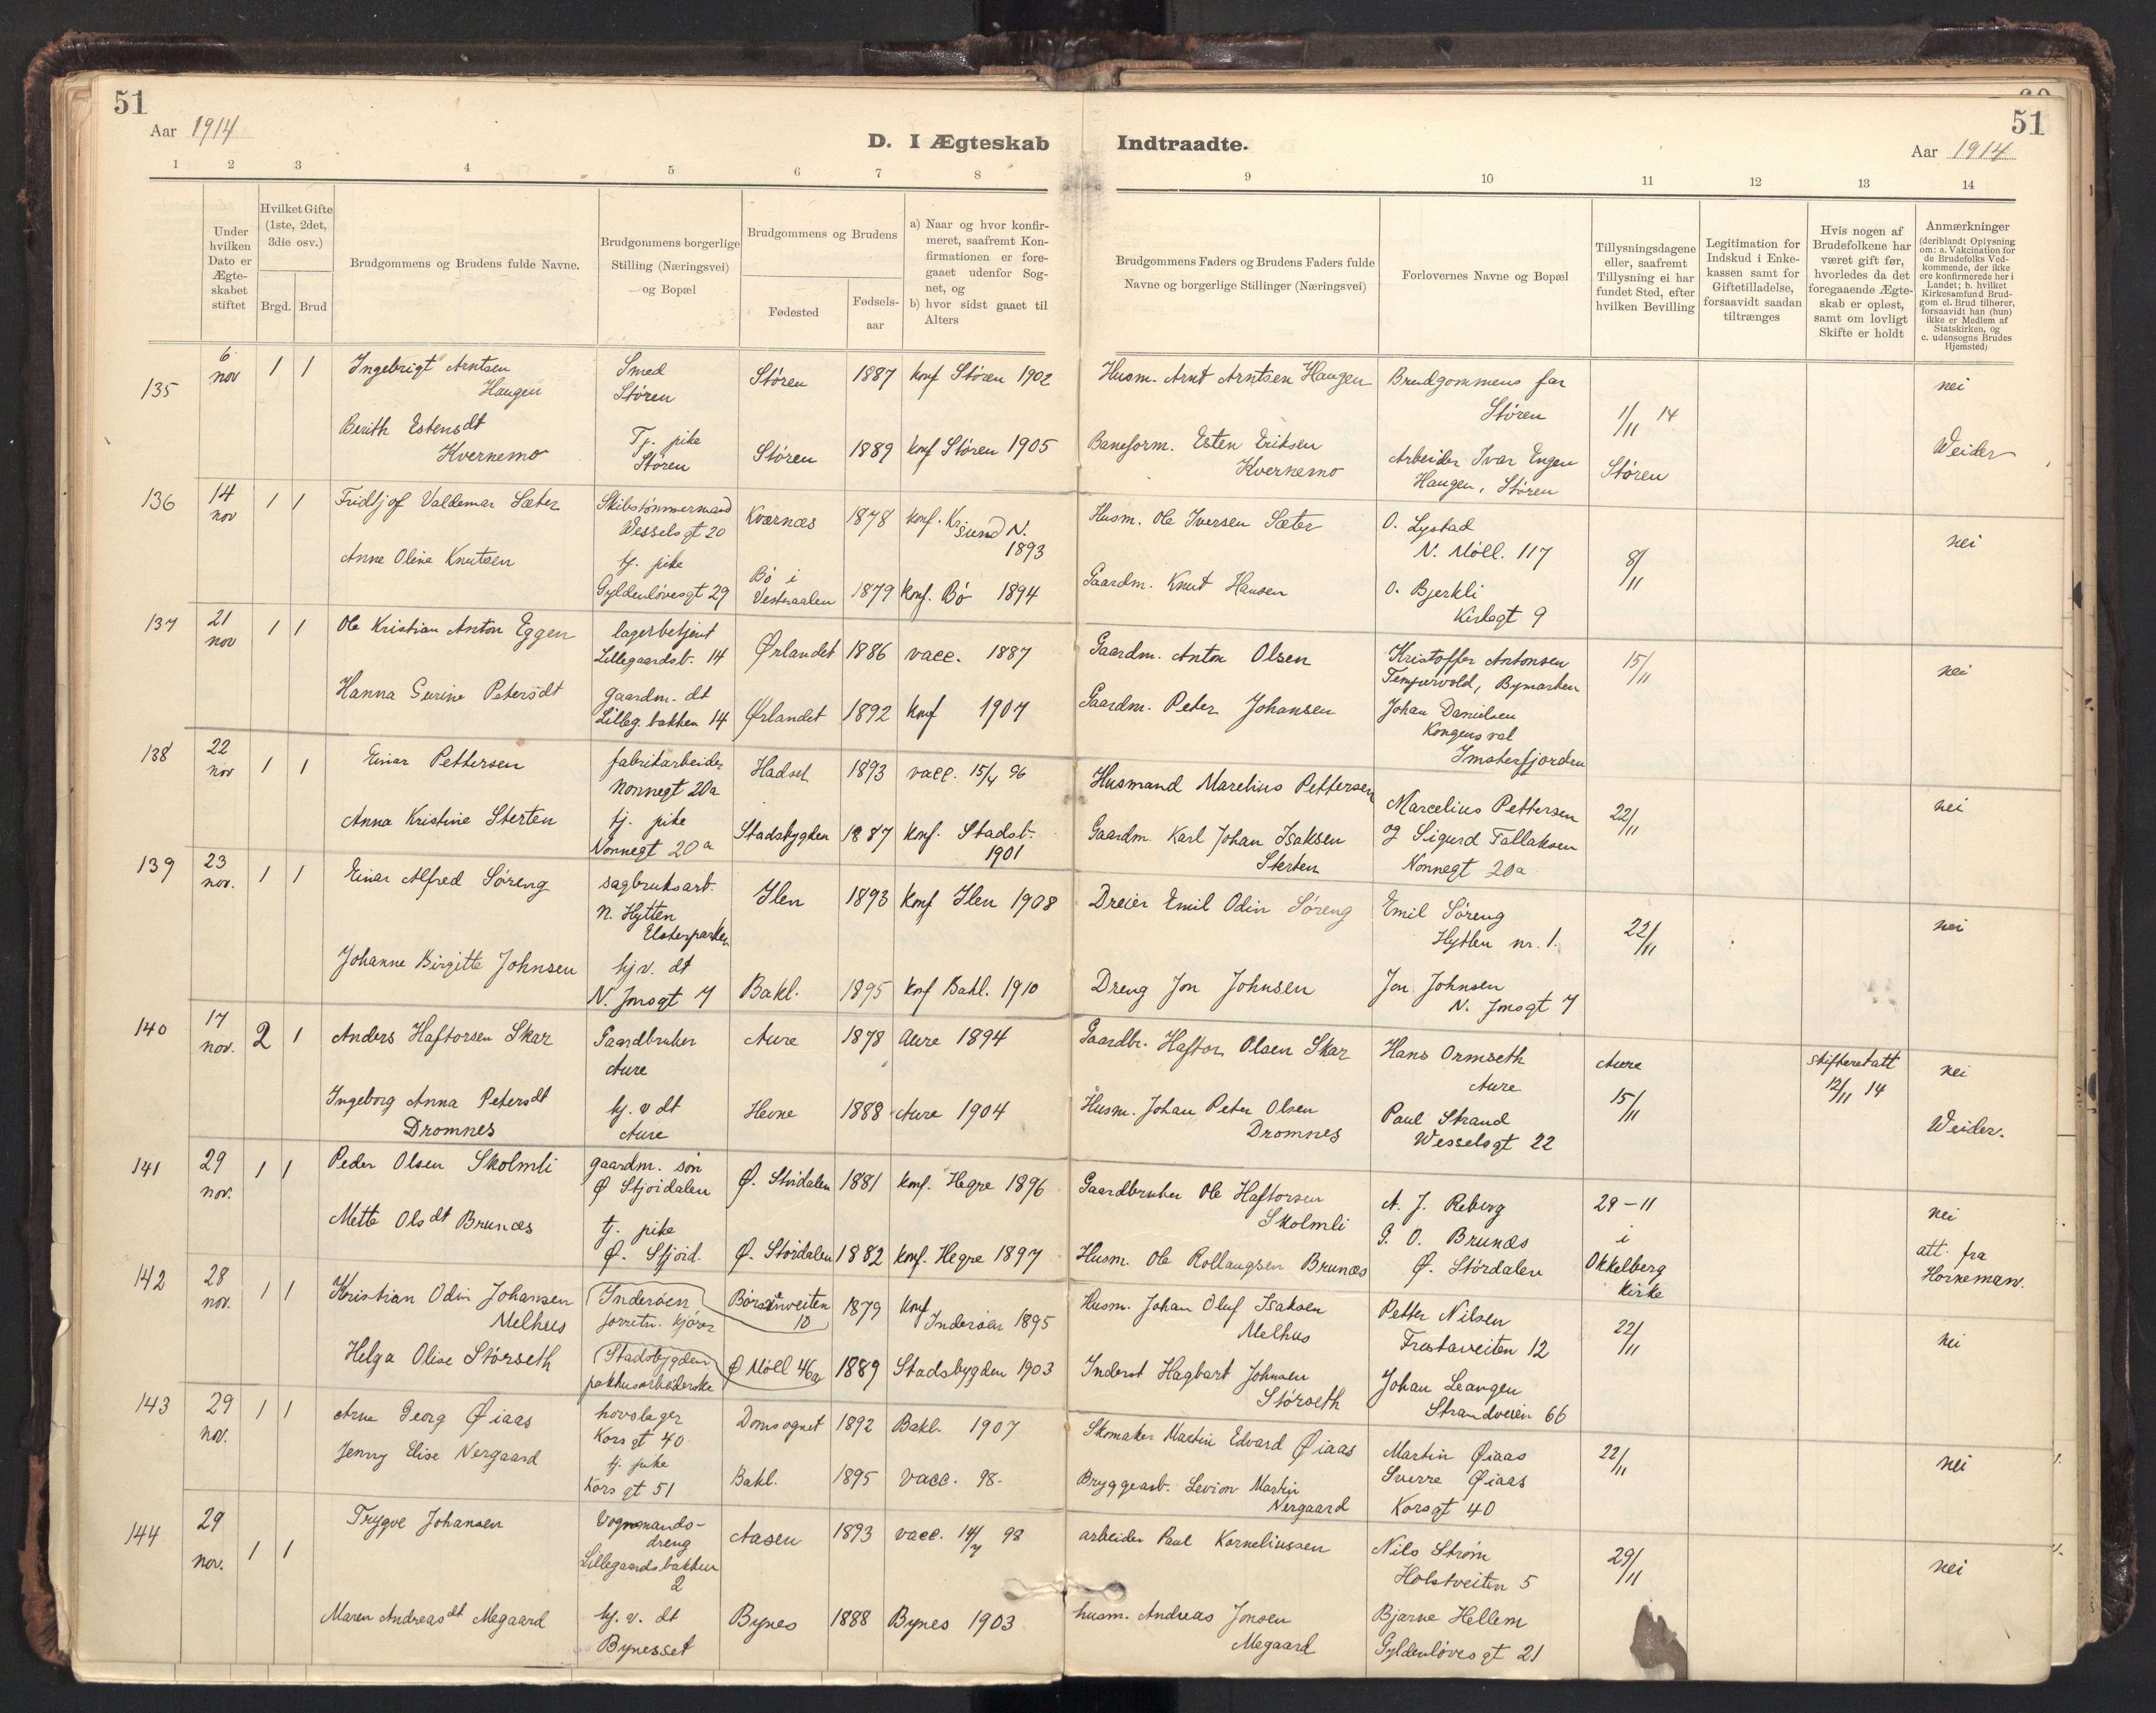 51
Aar 1914
D. I Ægteskab Indtraadte.
51
Aar 1914
1 2 3 4 5 6 7 8 9 10 11 12 13 14
Under hvilken Dato er Ægte-skabet stiftet
Hvilket Gifte (1ste, 2det, 3die osv.)
Brgd. Brud
Brudgommens og Brudens fulde Navne.
Brudgommens borgerlige Stilling (Næringsvei) og Bopæl
Brudgommens og Brudens
Fødested
Fødsels-aar
a) Naar og hvor konfir-meret, saafremt Kon-firmationen er fore-gaaet udenfor Sog-net, og
b) hvor sidst gaaet til Alters
Brudgommens Faders og Brudens Faders fulde Navne og borgerlige Stillinger (Næringsvei)
Forlovernes Navne og Bopæl
Tillysningsdagene eller, saafremt Tillysning ei har fundet Sted, efter hvilken Bevilling
Legitimation for Indskud i Enke-kassen samt for Giftetilladelse, forsaavidt saadan tiltrænges
Hvis nogen af Brudefolkene har været gift før, hvorledes da det foregaaende Ægte-skab er opløst, samt om lovligt Skifte er holdt
Anmærkninger (deriblandt Oplysning om: a. Vakcination for de Brudefolks Ved-kommende, der ikke ere konfirmerede her i Landet; b. hvilket Kirkesamfund Brud-gom el. Brud tilhører, forsaavidt han (hun) ikke er Medlem af Statskirken, og c. udensogns Brudes Hjemsted)
135 6 nov 1 1 Ingebrigt Arntsen Haugen Smed Støren Støren 1887 konf Støren 1902 Husm. Arnt Arntsen Haugen Brudgommens far Støren 1/11 14 nei
Berith Estensdt Kvernemo Tj. pike Støren Støren 1889 konf Støren 1905 Baneform. Esten Eriksen Kvernemo Arbeider Ivar Engen Haugen, Støren Støren Weider
136 14 nov 1 1 Fridtjof Valdemar Sæter Skibstømmermand Wesselsgt 20 Kvernæs 1878 konf. Kr.sund N. 1893 Husm. Ole Iversen Sæter O. Lystad N. Møll. 117 8/11 nei
Anne Oline Knutsen tj. pike Gyldenløvesgt 29 Bø i Vesteraalen 1879 konf. Bø 1894 Gaardm. Knut Hansen O. Bjerkli Kirkegt 9
137 21 nov 1 1 Ole Kristian Anton Eggen lagerbetjent Lillegaardsb. 14 Ørlandet 1886 vacc. 1887 Gaardm. Anton Olsen Kristoffer Antonsen Tempervold, Bymarken 15/11 nei
Hanna Serine Petersdt gaardm. dt Lilleg. bakken 14 Ørlandet 1892 konf 1907 Gaardm. Peter Johansen Johan Danielsen Kongensvol Imsterfjorden
138 22 nov 1 1 Einar Pettersen fabrikarbeider Nonnegt 20a Hadsel 1893 vacc. 15/4 96 Husmand Marelius Pettersen Marcelius Pettersen 22/11 nei
Anna Kristine Sterten tj. pike Nonnegt 20a Stadsbygden 1887 konf. Stadsb. 1901 Gaardm. Karl Johan Isaksen Sterten og Sigurd Tallaksen Nonnegt 20a
139 23 nov. 1 1 Einar Alfred Søreng sagbruksarb. N. Hytten Elsterparken Ilen 1893 konf Ilen 1908 Dreier Emil Odin Søreng Emil Søreng Hytten nr. 1. 22/11 nei
Johanne Birgitte Johnsen hjv. dt N. Jmsgt 7 Bakl. 1895 konf Bakl. 1910 Dreng Jon Johnsen Jon Johnsen N. Jmsgt 7
140 17 nov. 2 1 Anders Haftorsen Skar Gaardbruker Aure Aure 1878 Aure 1894 Gaardbr. Haftor Olsen Skar Hans Ormseth Aure Aure skifteretatt 12/11 14 nei
Ingeborg Anna Petersdt Dromnes hj. v dt Aure Hevne 1888 Aure 1904 Husm. Johan Peter Olsen Dromnes Paul Strand Wesselsgt 22 15/11 Weider.
141 29 nov. 1 1 Peder Olsen Skolmli gaardm. søn Ø Stjøidalen Ø. Størdalen 1881 konf. Hegre 1896 Gaardbruker Ole Haftorsen Skolmli A. J. Reberg 29-11 nei
Mette Olsdt Brunæs tj. pike Ø. Stjørd. Ø. Størdalen 1882 konf. Hegre 1897 Husm. Ole Rollaugsen Brunæs G. O. Brunæs Ø. Størdalen i Okkelberg kirke att. fra Horneman.
142 28 nov. 1 1 Kristian Odin Johansen Melhus Inderøen forretn. kjører Børsenveiten 10 1879 konf Inderøen 1895 Husm. Johan Oluf Isaksen Melhus Petter Nilsen Frostaveiten 12 22/11 nei
Helga Olise Størseth Stadsbygden pakhusarbeiderske Ø Møll 46a 1889 Stadsbygden 1903 Inderst Hagbart Johnsen Størseth Johan Leangen Strandveien 66
143 29 nov. 1 1 Arne Georg Øiaas hovslager Korsgt 40 Domsognet 1892 Bakl. 1907 Skomaker Martin Edvard Øiaas Martin Øiaas 22/11 nei
Jenny Elise Nergaard tj. pike Korsgt 51 Bakl. 1895 vacc. 98. Bryggearb. Levion Martin Nergaard Sverre Øiaas Korsgt 40
144 29 nov. 1 1 Trygve Johansen Vognmands-dreng Lillegaardsbakken 2 Aasen 1893 vacc. 14/7 98 arbeider Paul Korneliussen Nils Strøm Holstveiten 5 29/11 nei
Maren Andreasdt Megaard hj. v. dt Bynesset Bynes 1888 Bynes 1903 husm. Andreas Jonsen Megaard Bjarne Hellem Gyldenløvesgt 21